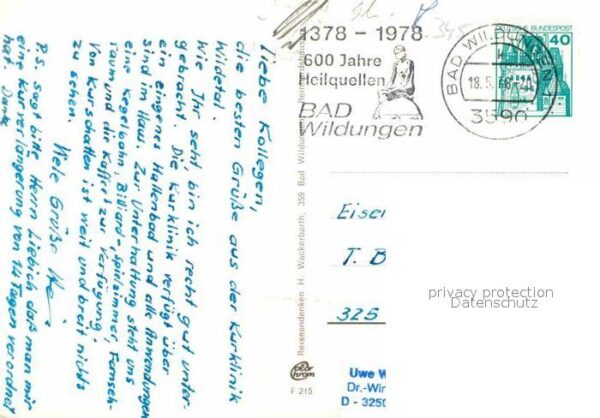 Liebe Kollegen,
die besten Grüße aus der Kurklinik
Wildetal.
Wie Ihr seht, bin ich recht gut unter-
gebracht. Die Kurklinik verfügt über
ein eigenes Hallenbad und alle Anwendungen
sind im Haus. Zur Unterhaltung steht uns
eine Kegelbahn, Billiard-Spielzimmer, Fernseh-
raum und die Kaffert zur Verfügung.
Von Kurschatten ist weit und breit nichts
zu sehen.
Viele Grüße
P.S. Sagt bitte Herrn Lieblich daß man mir
eine Kurverlängerung von 14 Tagen verordnet
hat. Danke
1378 - 1978
600 Jahre
Heilquellen
BAD
Wildungen
BAD WILDUNGEN
18.5.78-20
3590
DEUTSCHE BUNDESPOST
40
345
Reiseandenken H. Wackerbarth, 359 Bad Wildungen,
polar
chrom
F 215
Eise
T. B
325
privacy protection
Datenschutz
Uwe W
Dr.-Wir
D - 3250